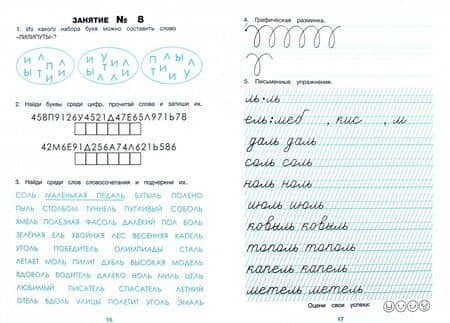 ЗАНЯТИЕ № 8
1. Из какого набора букв можно составить слово
«ЛИЛИПУТЫ»?
2. Найди буквы среди цифр, прочитай слова и запиши их.
458П9126У4521Д47Е65Л971Ь78
42М6Е91Д256А74Л621Ь586
3. Найди среди слов словосочетания и подчеркни их.
СОЛЬ МАЛЕНЬКАЯ ПЕДАЛЬ БУТЫЛЬ ПОЛЕНО
ПЫЛЬ СТОЛБОМ ТУННЕЛЬ ПУГЛИВЫЙ СОБОЛЬ
ХМЕЛЬ ПОЛЕЗНАЯ ФАСОЛЬ ДАЛЁКИЙ ПОЛ БОЛЬ
ЗЕЛЁНАЯ ЕЛЬ ХВОЙНАЯ ЛЕС ВЕСЕННЯЯ КАПЕЛЬ
УГОЛЬ ПОБЕДИТЕЛЬ ОЛИМПИАДЫ СТАЛЬ
ЛЕТАЕТ МОЛЬ ПИЛИТ ДУБЛЬ ВЫСОКАЯ МОДЕЛЬ
ВДОВОЛЬ ВОДИТЕЛЬ ДАЛЕКО НОЛЬ МИЛЬ ЦЕЛЬ
ЛЮБИМЫЙ ПИСАТЕЛЬ СПАСАТЕЛЬ ЛЕТНИЙ
ОТЕЛЬ ВДОЛЬ УЛИЦЫ ПОЛЕТИТ УГОЛЬ ЭМАЛЬ
16
4. Графическая разминка.
5. Письменные упражнения.
ль • ль
ель: меб , кис , м
даль даль
соль соль
ноль ноль
июль июль
ковыль ковыль
тополь тополь
капель капель
метель метель
Оцени свои успехи:
17